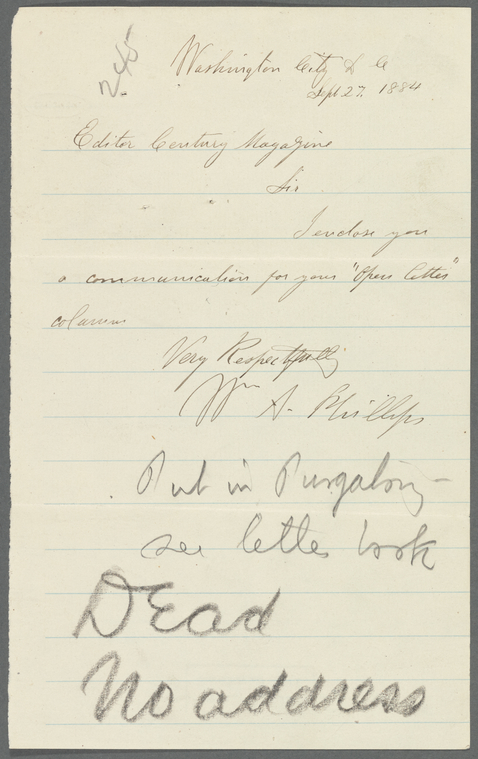 245
Washington City D C
Sept 27. 1884
Editor Century Magazine
Sir
I enclose you
a communication for your "Open letter"
column
Very Respectfully
Wm A. Phillips
Put in Purgatory -
see letter book
DEad
No address